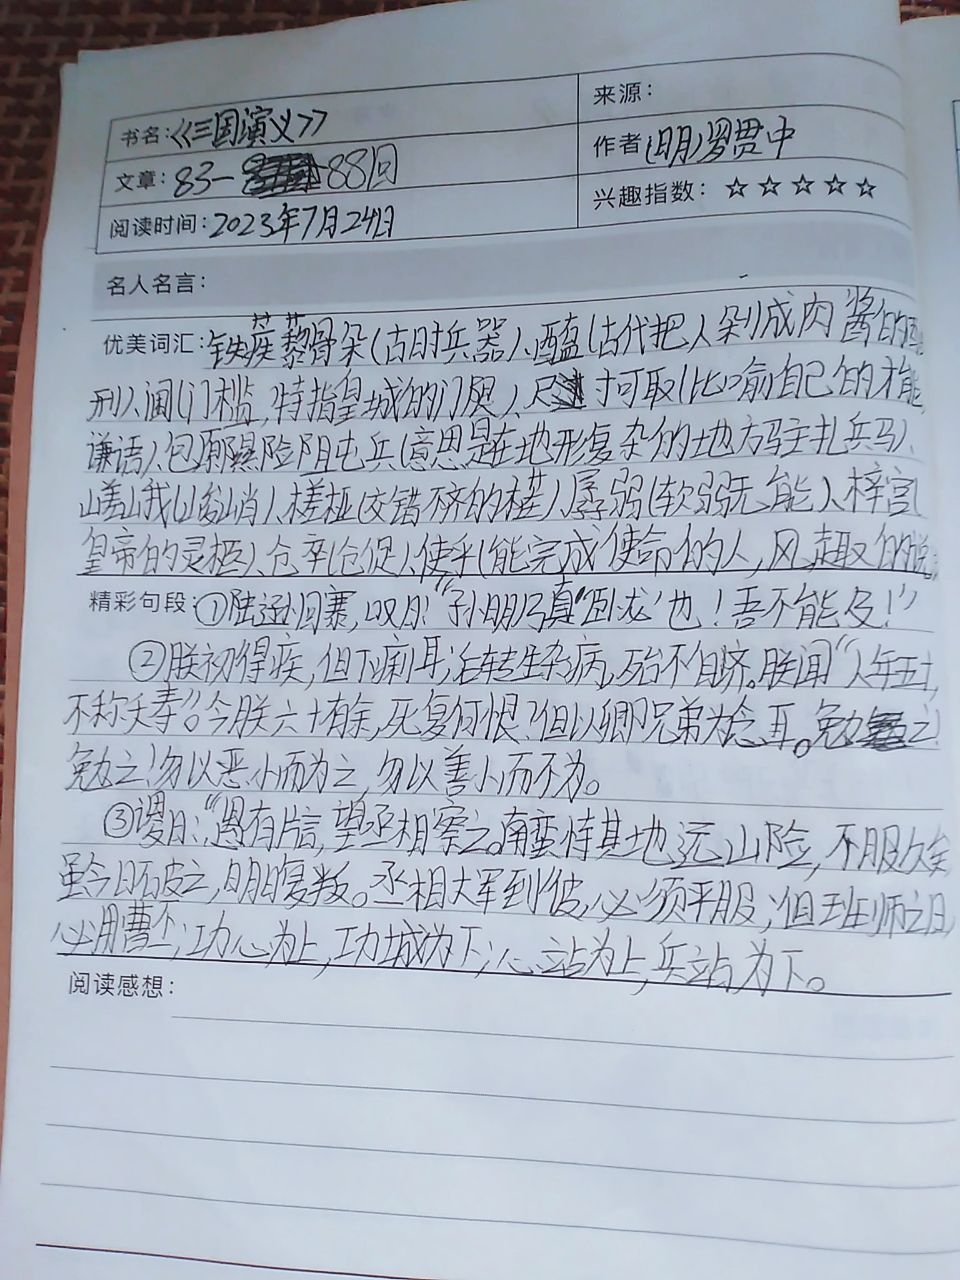 书名：《三国演义》
来源：
作者(明)罗贯中
文章：83—88回
兴趣指数：☆☆☆☆☆
阅读时间：2023年7月24日
名人名言：
优美词汇：铁蒺藜骨朵(古时兵器)、醢(古代把人剁成肉酱的酷
刑)、阃(门槛,特指皇城的门奥)、尺寸可取(比喻自己的才能,
谦语)、包原隰险阻屯兵(意思是在地形复杂的地方驻扎兵马)、
嵯峨(山峻山肖)、槎桠(交错不齐的样)、孱弱(软弱无能)、梓宫(
皇帝的灵柩)、仓卒(仓促)、使乎(能完成使命的人,风趣的说
精彩句段：①陆逊回寨,叹曰：“孔明乃真‘卧龙’也！吾不能及！”
②朕初得疾,但下痢耳；后转生杂病,殆不自济。朕闻“人年五十,
不称夭寿”。今朕六十有余,死复何恨？但以卿兄弟为念耳。勉之！
勉之！勿以恶小而为之,勿以善小而不为。
③谡曰：“愚有片言,望丞相察之。南蛮恃其地远山险,不服久矣
虽今日破之,明日复叛。丞相大军到彼,必须平服；但班师之日,
必用曹丕；功心为上,功城为下；心站为上,兵站为下。
阅读感想：